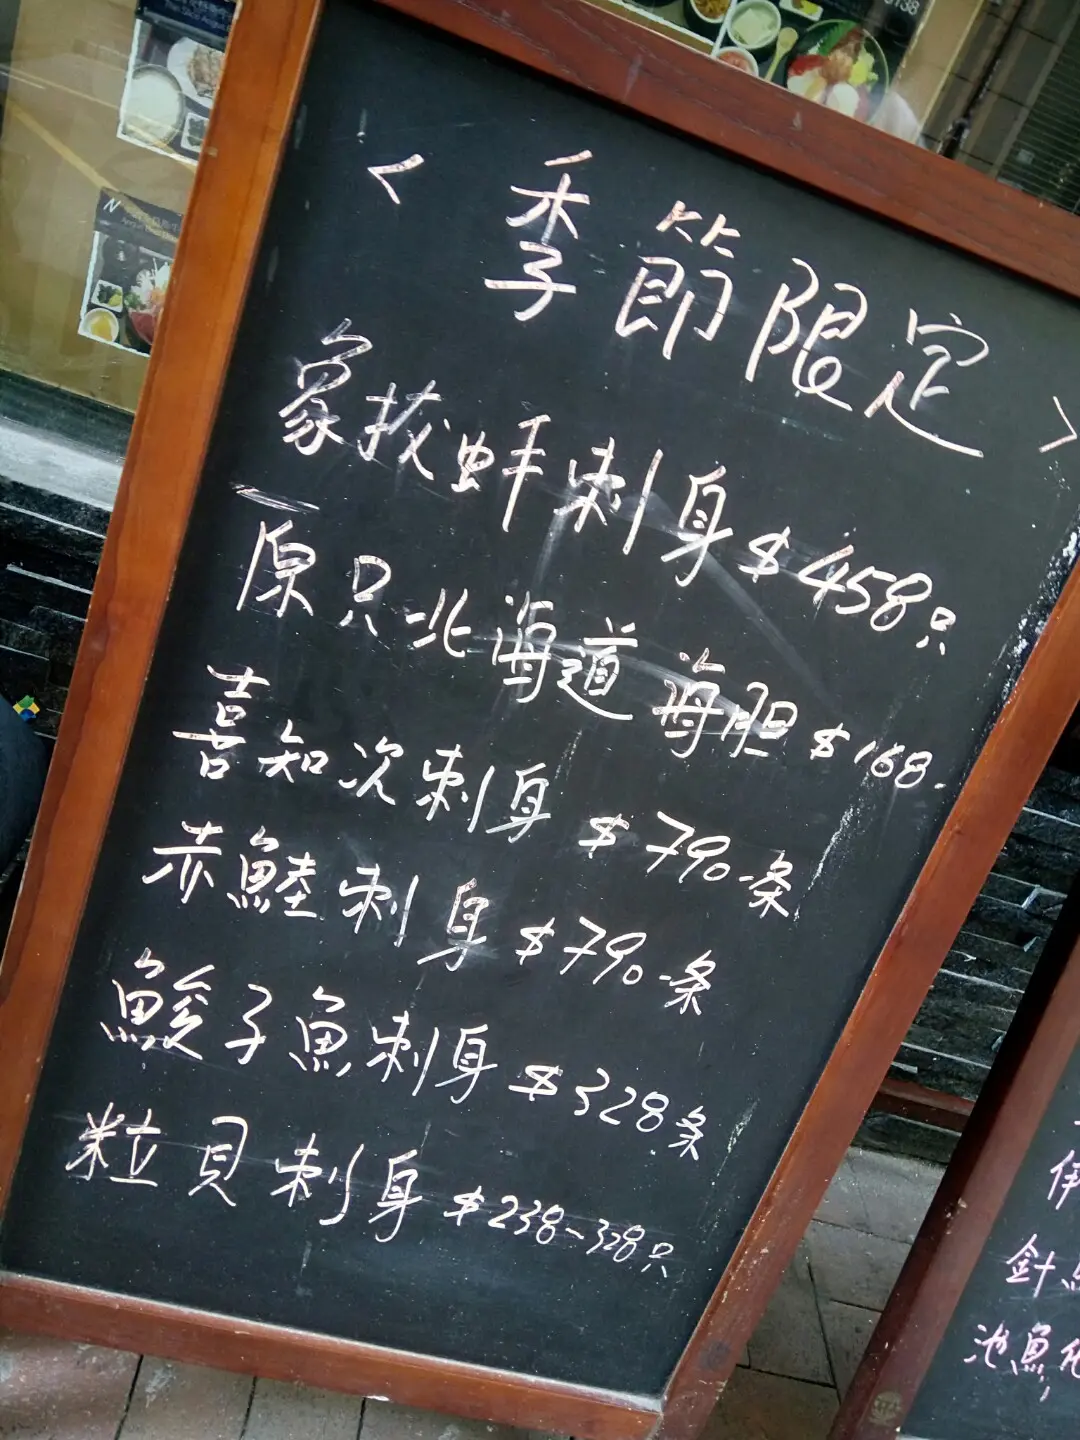 <季節限定>
象拔蚌刺身$458只
原只北海道海胆$168.
喜知次刺身$790条
赤鯥刺身$790条
鮻子魚刺身$328条
粒貝刺身$238-328只
針
池魚